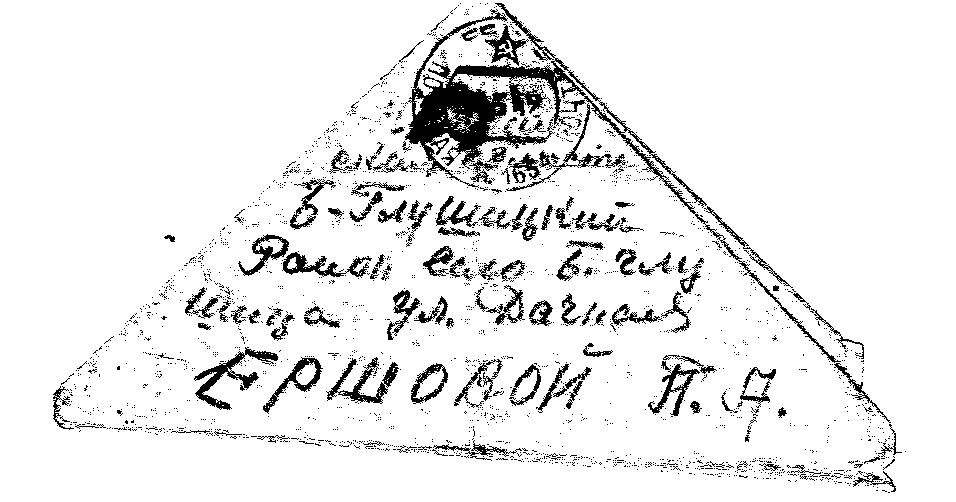 Б-Глушицкий
Район Село Б. Глу
шица ул. Дачная
ЕРШОВОЙ П. А.